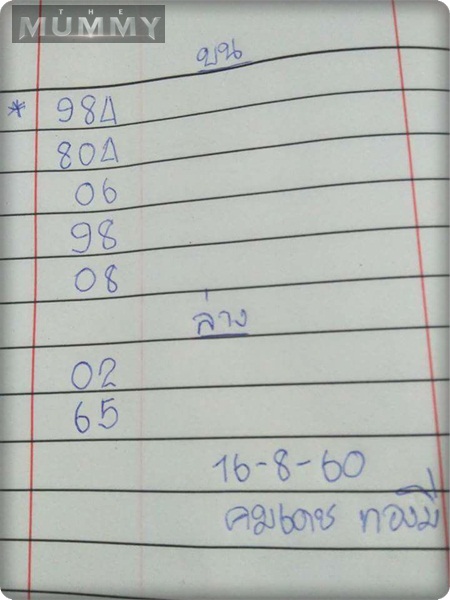 THE
MUMMY
บน
* 984
804
06
98
08
ล่าง
02
65
16-8-60
คมเดช ทองมี